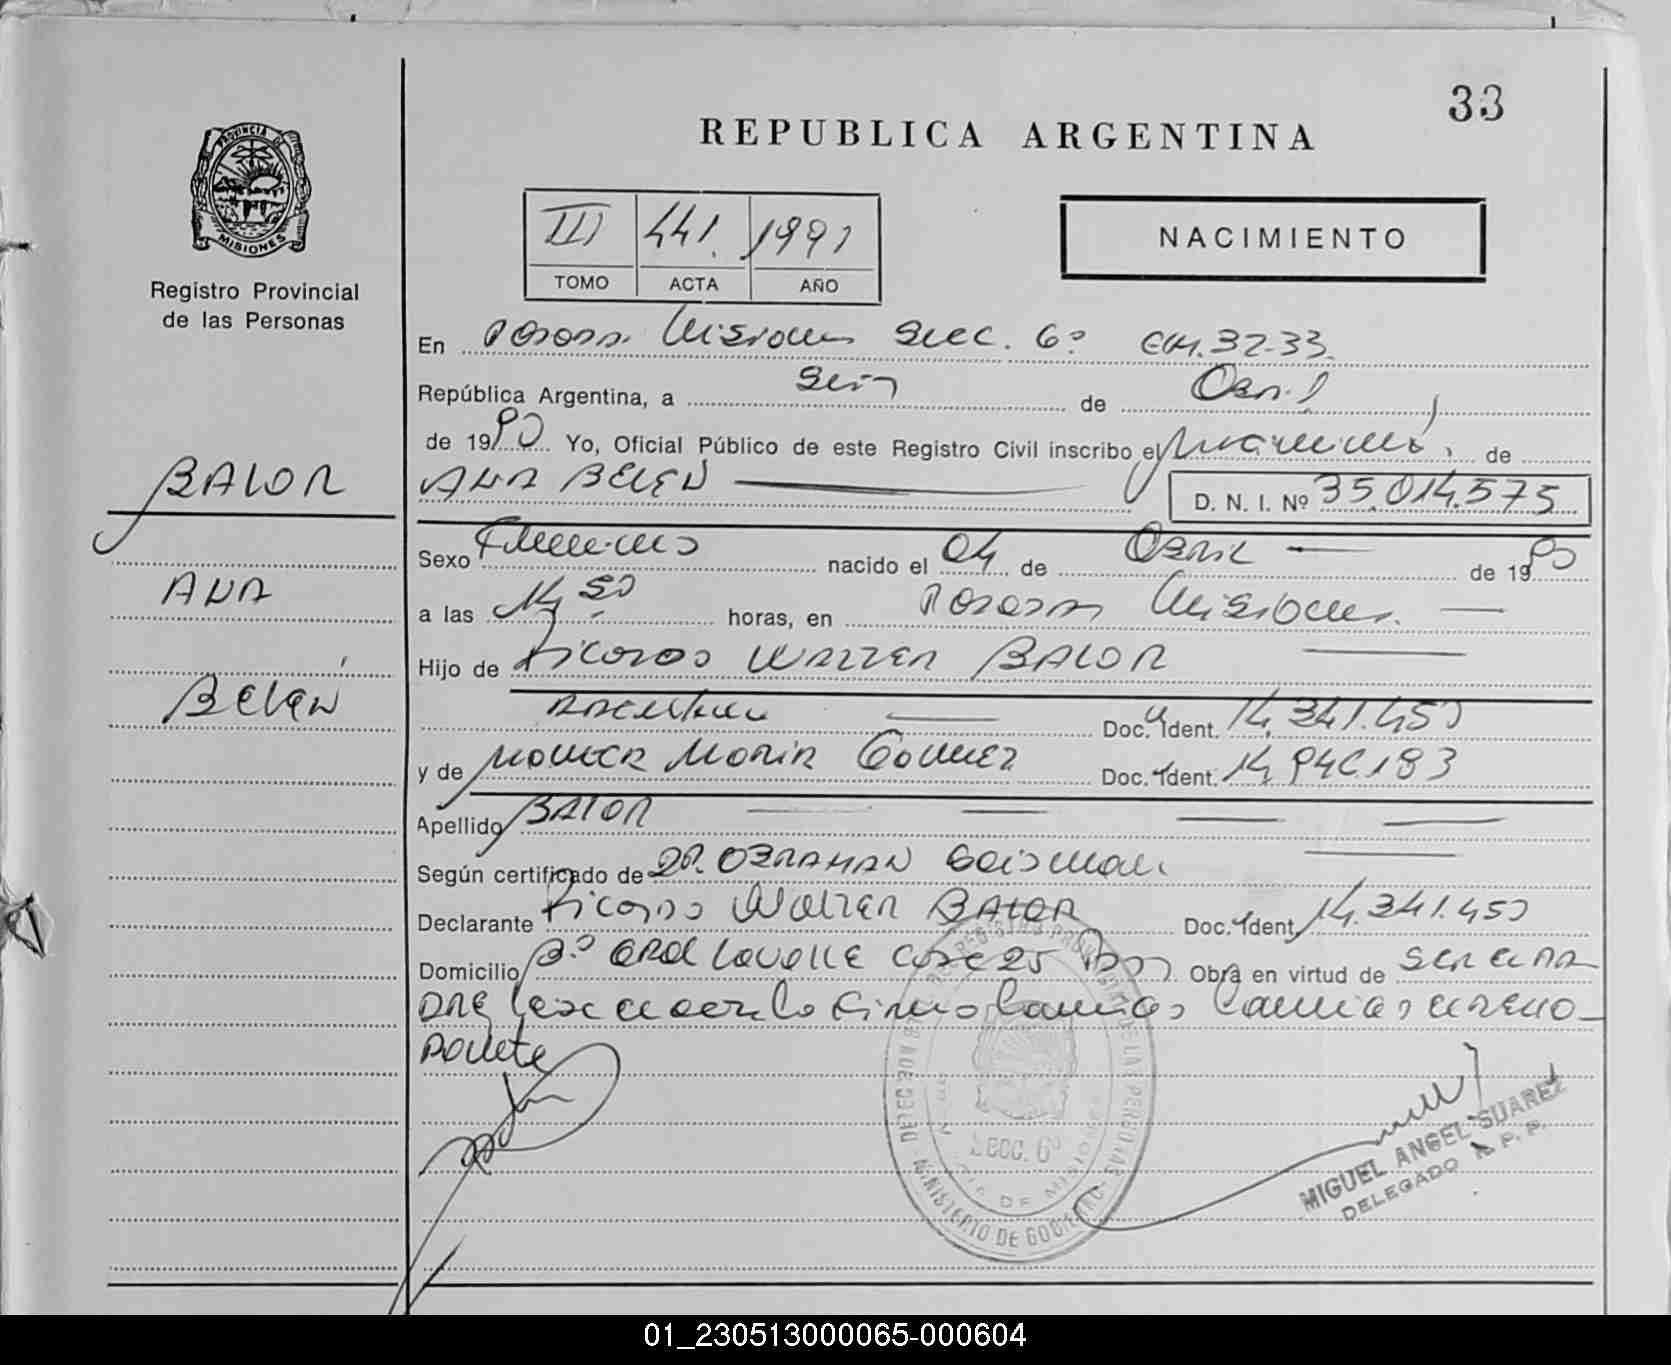 33
REPUBLICA ARGENTINA
PROVINCIA DE
MISIONES
Registro Provincial
de las Personas
III 441. 1991
TOMO ACTA AÑO
NACIMIENTO
En Posadas Misiones Secc. 6º 32-33
República Argentina, a seis de Abril
de 1990 Yo, Oficial Público de este Registro Civil inscribo el nacimiento, de
ANA BELEN
D. N. I. Nº 35.014.575
BALOR
ANA
BELEN
Sexo Femenino nacido el 04 de Abril de 1990
a las 14,50 horas, en Posadas Misiones.
Hijo de Ricardo WALTER BALOR
Argentino Doc. Ident. 14.341.450
y de MONICA MARIA GOMEZ Doc. Ident. 14.946.183
Apellido BALOR
Según certificado de DR. ABRAHAN
Declarante Ricardo Walter BALOR Doc. Ident. 14.341.450
Domicilio Bº GRAL LAVALLE CASA 25 Obra en virtud de ser el PA
DRE
MINISTERIO DE GOBIERNO
SECC. 6º
MIGUEL ANGEL SUAREZ
DELEGADO R. P. P.
01_230513000065-000604